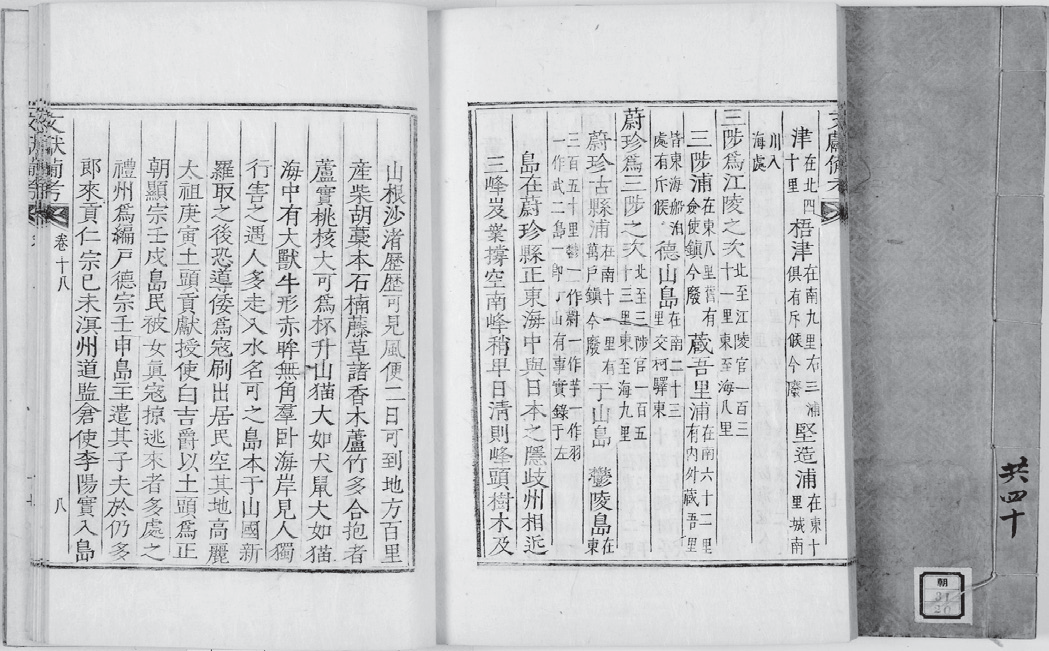 共四十
朝
31
20
文獻備考
津在北四十里 梧津在南九里右三浦俱有斥候今廢 堅造浦在東十里城南
川入海處
三陟爲江陵之次北至江陵官一百三十一里東至海八里
三陟浦在東八里舊有僉使鎮今廢 蔵吾里浦在南六十二里有內外蔵吾里
皆東海船泊處有斥候 德山島在南二十三里交柯驛東
蔚珍爲三陟之次北至三陟官一百五十三里東至海九里
蔚珍古縣浦在南十一里有萬戶鎮今廢 于山島 鬱陵島在東
三百五十里鬱一作蔚一作芋一作羽一作武二島一卽于山有事實錄于左
島在蔚珍縣正東海中與日本之隱歧州相近
三峰岌嶪撐空南峰稍卑日清則峰頭樹木及
山根沙渚歷歷可見風便二日可到地方百里
產柴胡藁本石楠藤草諸香木蘆竹多合抱者
蘆實桃核大可爲杯升山猫大如犬鼠大如猫
海中有大獸牛形赤眸無角羣卧海岸見人獨
行害之遇人多走入水名可之島本于山國新
羅取之後恐導倭爲寇刷出居民空其地高麗
太祖庚寅土頭貢獻授使白吉爵以土頭爲正
朝顯宗壬戌島民被女真寇掠逃來者多處之
禮州爲編戶德宗壬申島主遣其子夫於仍多
郎來貢仁宗己未溟州道監倉使李陽實入島
文獻備考 卷十八 八